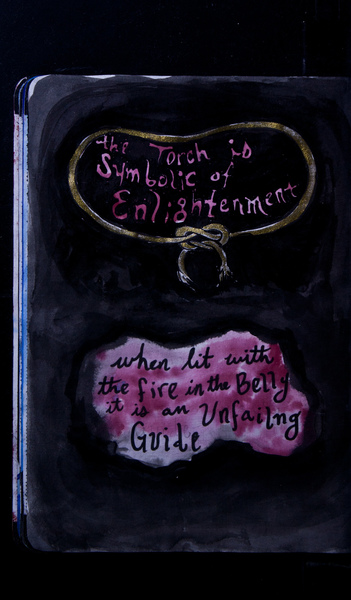 the Torch is
Symbolic of
Enlightenment
when lit with
the fire in the Belly
it is an Unfailng
Guide